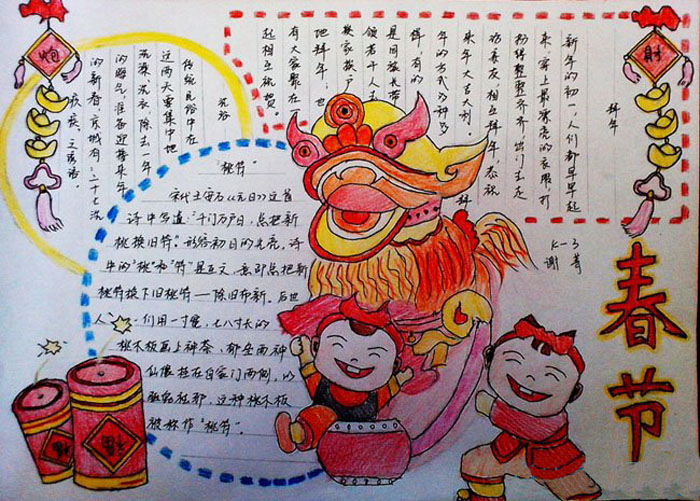 拜年
新年的初一,人们都早早起
来,穿上最漂亮的衣服,打
扮得整整齐齐,出门去走
访亲友,相互拜年,恭祝
来年大吉大利。拜
年的方式多种多
样,有的
是同族长带
领若干人
挨家挨户
地拜年;也
有大家聚在一
起相互祝贺。
洗浴
传统民俗中在
这两天要集中地
洗澡、洗衣,除去一年
的晦气,准备迎接来年
的新春,京城有"二十七洗
"桃符"
宋代王安石《元日》这首
诗中写道:"千门万户日,总把新
桃换旧符".形容初日的光亮,诗
中的"桃"和"符"是互文,意即总把新
桃符换下旧桃符—除旧布新。后世
人们用一寸宽,七八寸长的
桃木板画上神荼、郁垒两神
仙像挂在自家门两侧,以
驱鬼祛邪,这种桃木板
被称作"桃符".
春节